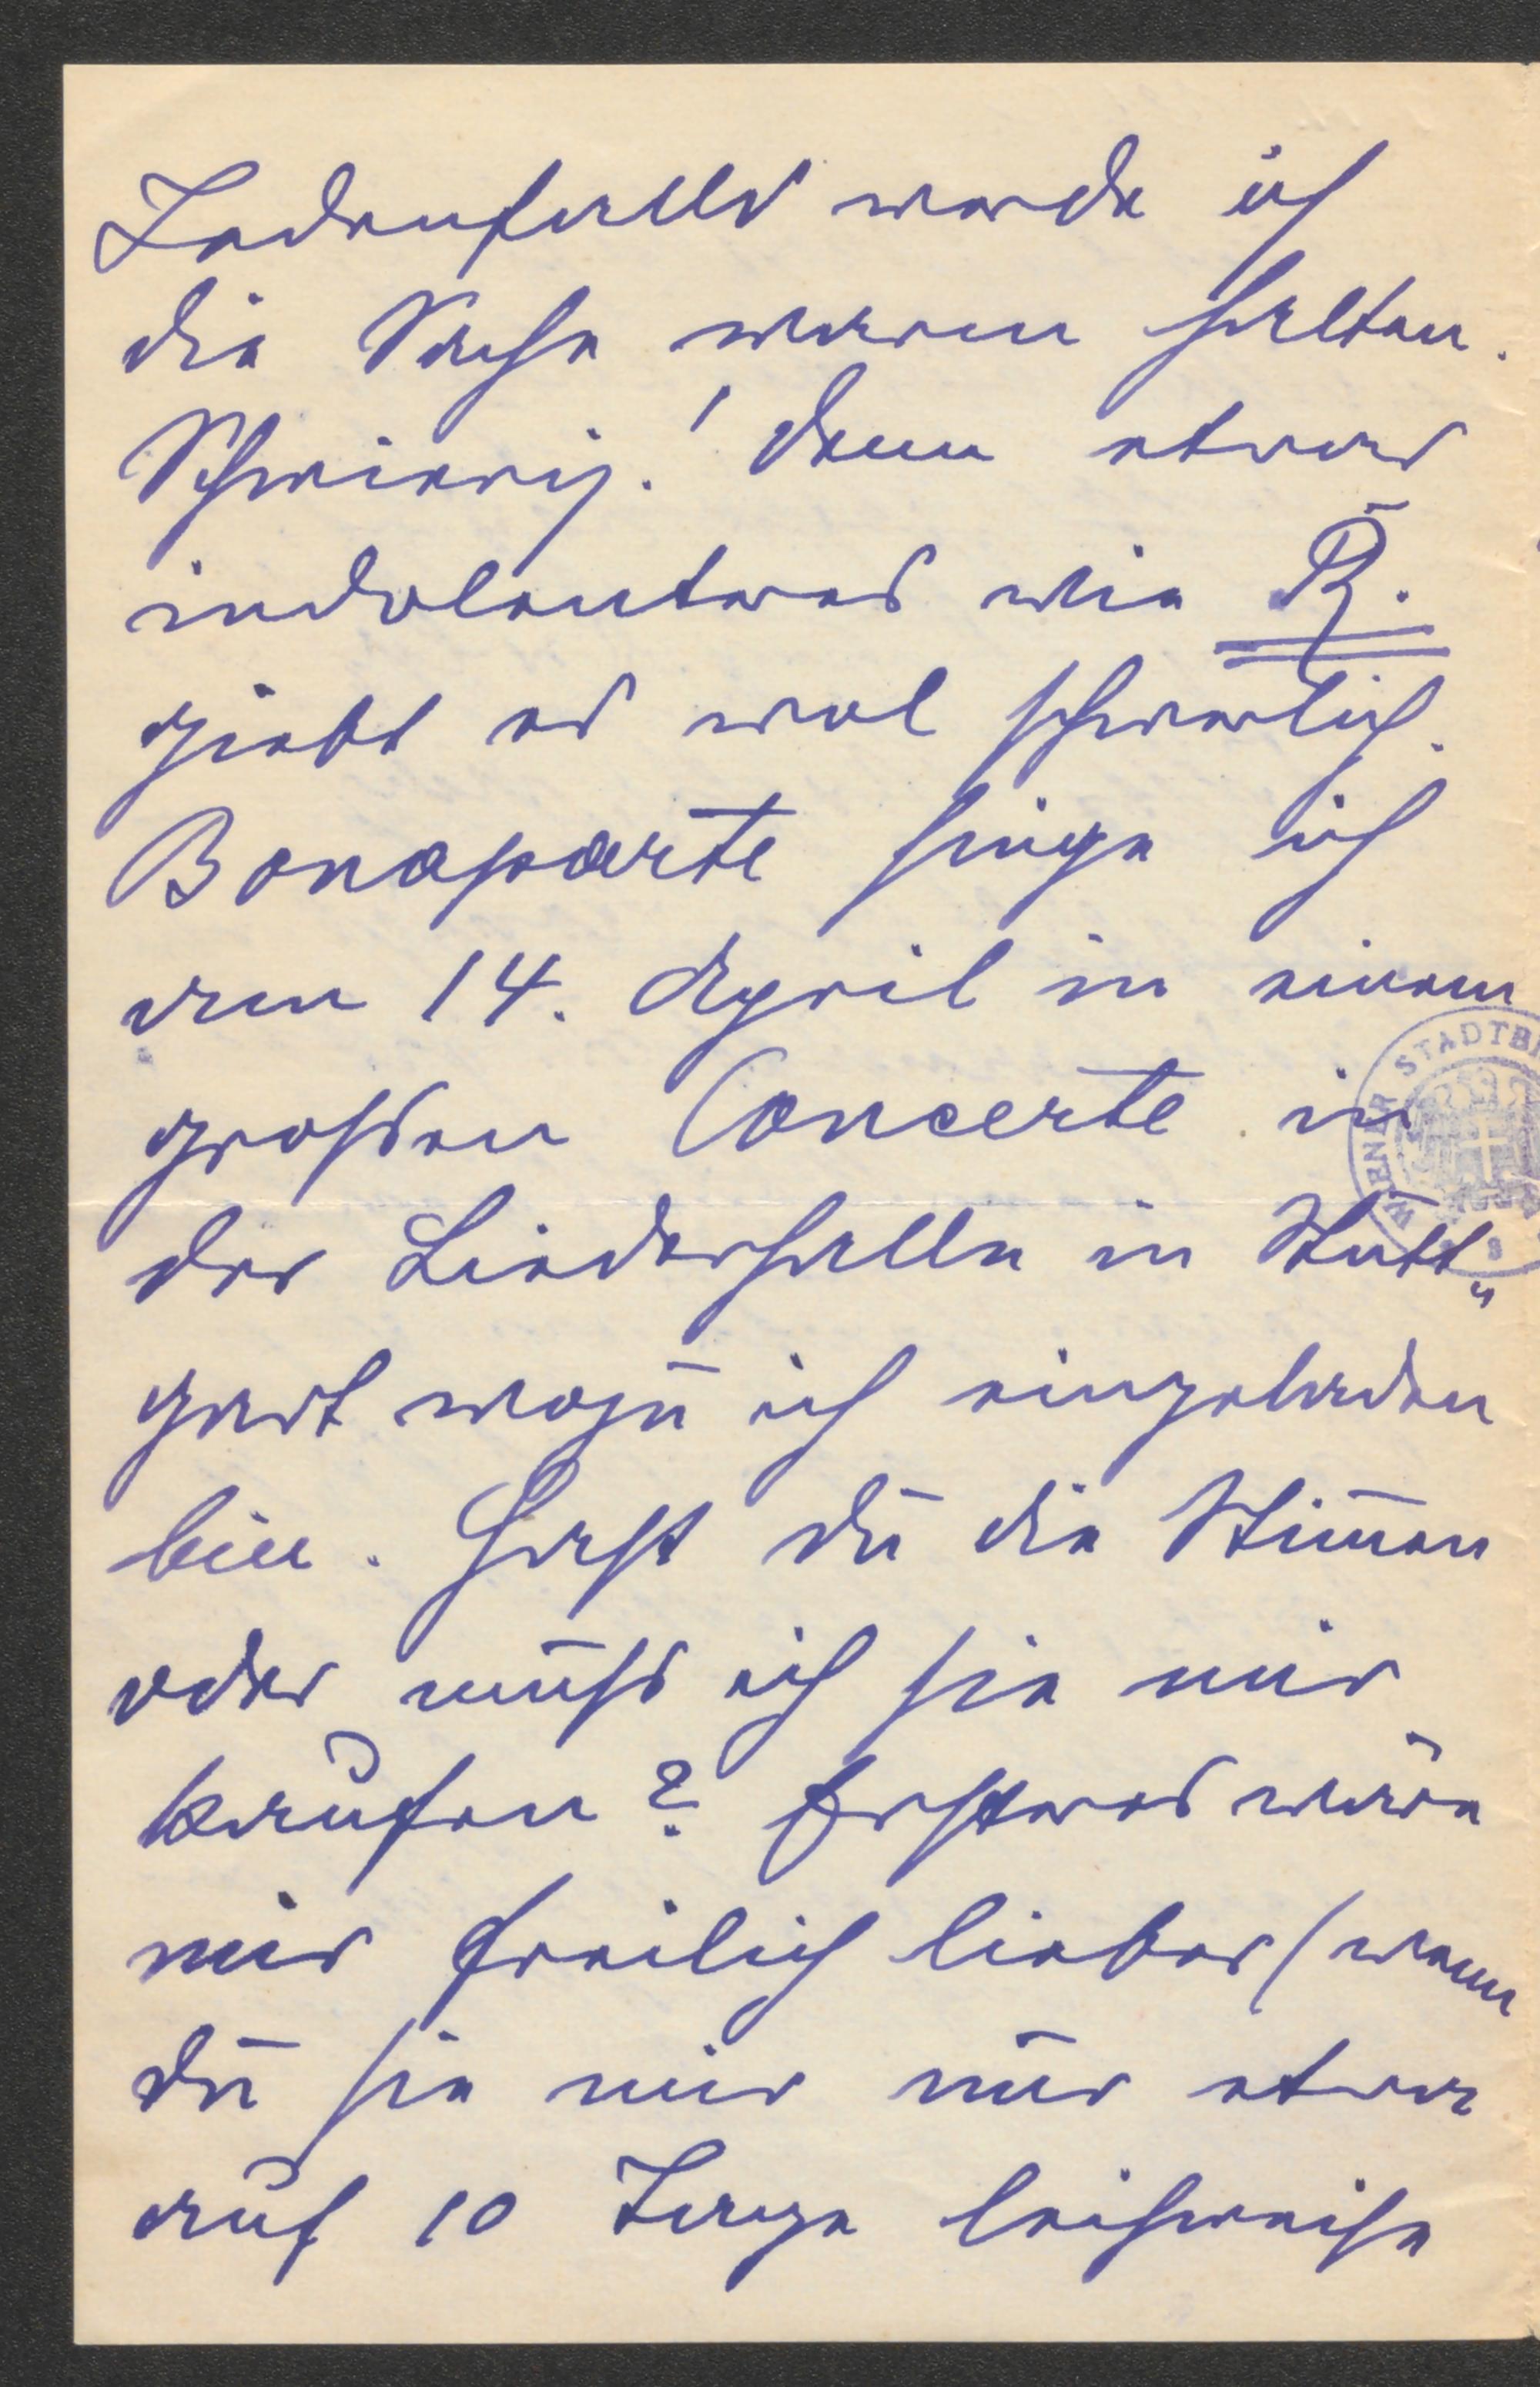 Jedenfalls werde ich
die Sache warm halten.
Schwierig! denn etwas
indolenteres wie R.
giebt es wol schwerlich.
Bonaparte singe ich
am 14. April in einem
grossen Concerte in
der Liederhalle in Stutt„
gart wozu ich eingeladen
bin. Hast du die Stim̄en
oder muss ich sie mir
kaufen? Ersteres wäre
mir freilich lieber (wenn
du sie mir nur etwa
auf 10 Tage leihweise
WIENER STADTBI